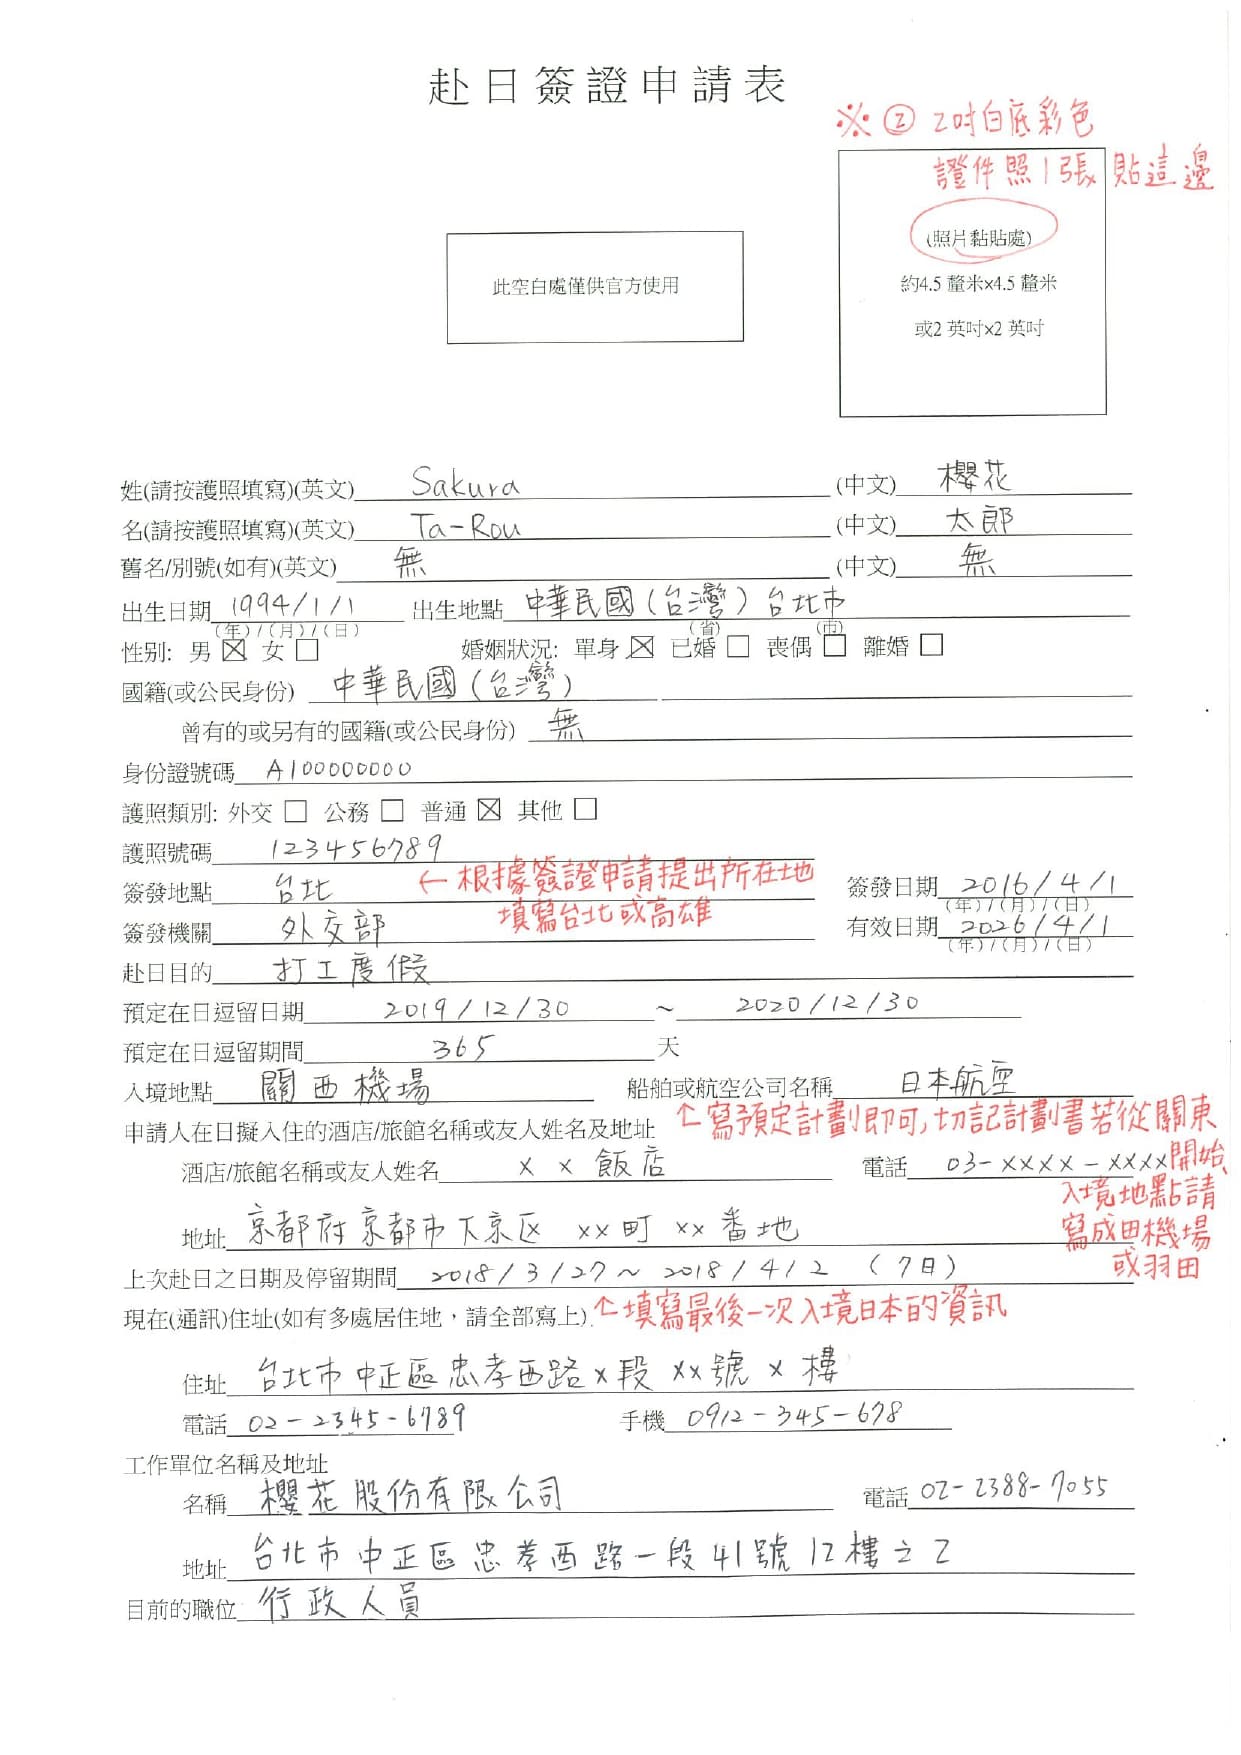 赴日簽證申請表
※② 2吋白底彩色
證件照1張 貼這邊
(照片黏貼處)
約4.5 釐米×4.5 釐米
或2 英吋×2 英吋
此空白處僅供官方使用
姓(請按護照填寫)(英文) Sakura (中文) 櫻花
名(請按護照填寫)(英文) Ta-Rou (中文) 太郎
舊名/別號(如有)(英文) 無 (中文) 無
出生日期 1994/1/1 出生地點 中華民國(台灣)台北市
(年)/(月)/(日) (省) (市)
性別: 男 ☒ 女 □ 婚姻狀況: 單身 ☒ 已婚 □ 喪偶 □ 離婚 □
國籍(或公民身份) 中華民國(台灣)
曾有的或另有的國籍(或公民身份) 無
身份證號碼 A100000000
護照類別: 外交 □ 公務 □ 普通 ☒ 其他 □
護照號碼 123456789
簽發地點 台北 ←根據簽證申請提出所在地 簽發日期 2016/4/1
填寫台北或高雄 (年)/(月)/(日)
簽發機關 外交部 有效日期 2026/4/1
(年)/(月)/(日)
赴日目的 打工度假
預定在日逗留日期 2019/12/30 ~ 2020/12/30
預定在日逗留期間 365 天
入境地點 關西機場 船舶或航空公司名稱 日本航空
申請人在日擬入住的酒店/旅館名稱或友人姓名及地址 ↑寫預定計劃即可,切記計劃書若從關東
酒店/旅館名稱或友人姓名 ×× 飯店 電話 03-××××-×××× 開始、
入境地點請
寫成田機場
或羽田
地址 京都府京都市下京区 ××町 ××番地
上次赴日之日期及停留期間 2018/3/27~2018/4/2 (7日)
現在(通訊)住址(如有多處居住地，請全部寫上). ↑填寫最後一次入境日本的資訊
住址 台北市中正區忠孝西路×段 ××號 ×樓
電話 02-2345-6789 手機 0912-345-678
工作單位名稱及地址
名稱 櫻花股份有限公司 電話 02-2388-7055
地址 台北市中正區忠孝西路一段41號12樓之2
目前的職位 行政人員